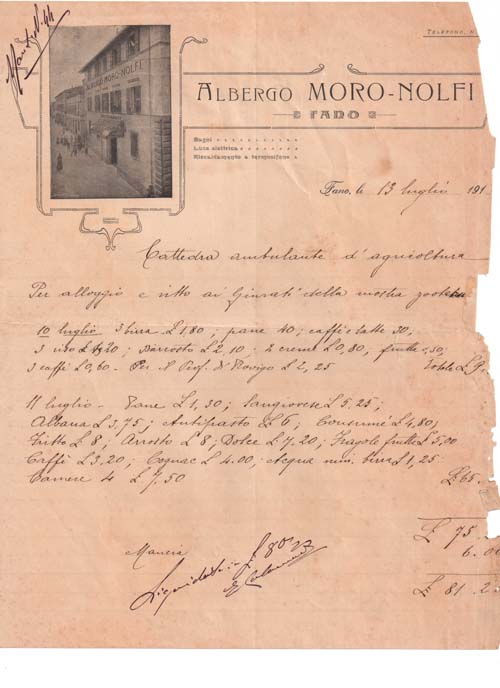 TELEFONO, N.
ALBERGO MORO-NOLFI
FANO
ALBERGO MORO-NOLFI
Bagni
Luce elettrica
Riscaldamento a termosifone
Fano, li 13 luglio 191
Cattedra ambulante d'agricoltura
Per alloggio e vitto ai Giurati della mostra
10 luglio 3 birra £ 1,80; pane 40; caffè e latte 50;
3 £ 4,20; £ 2,10; 2 creme £ 0,80, frutta 50;
3 caffè £ 0,60 - Per il Prof. di Rovigo £ 2,25 Totale £ 9
11 luglio - Pane £ 1,30; Sangiovese £ 5,25;
Albana £ 3,75; Antipasto £ 6; Consumé £ 4,80;
Fritto £ 8; Arrosto £ 8; Dolce £ 7,20; Fragole frutta £ 5,00
Caffè £ 3,20; Cognac £ 4.00; Acqua min. birra £ 1,25
Camere 4 £ 7.50 £ 65.
£ 75
Mancia 6.00
£ 81.2